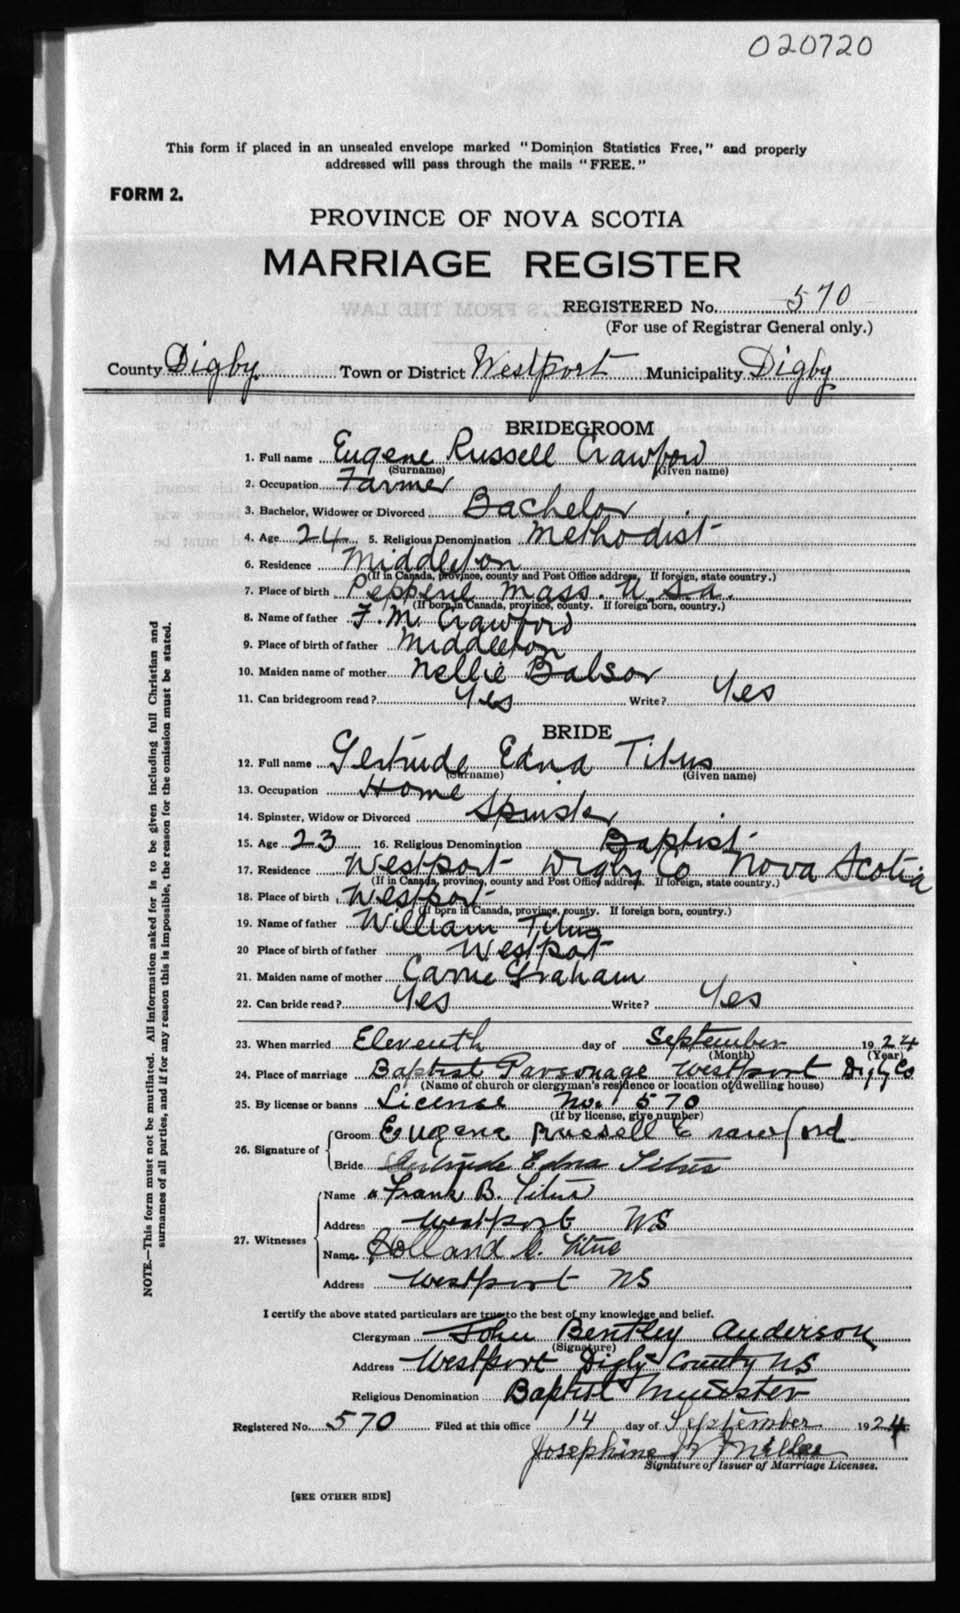 020720
This form if placed in an unsealed envelope marked "Dominion Statistics Free," and properly
addressed will pass through the mails "FREE."
FORM 2.
PROVINCE OF NOVA SCOTIA
MARRIAGE REGISTER
REGISTERED No. 570
(For use of Registrar General only.)
County Digby Town or District Westport Municipality Digby
BRIDEGROOM
1. Full name Eugene Russell Crawford
(Surname) (Given name)
2. Occupation Farmer
3. Bachelor, Widower or Divorced Bachelor
4. Age 24 5. Religious Denomination Methodist
6. Residence Middleton
(If in Canada, province, county and Post Office address. If foreign, state country.)
7. Place of birth Mass. U.S.a.
(If born in Canada, province, county. If foreign born, country.)
8. Name of father F. M. Crawford
9. Place of birth of father Middleton
10. Maiden name of mother Nellie Balsor
11. Can bridegroom read? Yes Write? Yes
BRIDE
12. Full name Gertrude Edna Titus
(Surname) (Given name)
13. Occupation Home
14. Spinster, Widow or Divorced Spinster
15. Age 23 16. Religious Denomination Baptist
17. Residence Westport Digby Co Nova Scotia
(If in Canada, province, county and Post Office address. If foreign, state country.)
18. Place of birth Westport
(If born in Canada, province, county. If foreign born, country.)
19. Name of father William Titus
20 Place of birth of father Westport
21. Maiden name of mother Graham
22. Can bride read? Yes Write? Yes
23. When married Eleventh day of September 1924
(Month) (Year)
24. Place of marriage Baptist Parsonage Westport Digby Co
(Name of church or clergyman's residence or location of dwelling house)
25. By license or banns License No. 570
(If by license, give number)
26. Signature of Groom Eugene Russell Crawford
Bride Gertrude Edna Titus
27. Witnesses
Name Frank B. Titus
Address Westport NS
Name Holland C. Titus
Address Westport NS
I certify the above stated particulars are true to the best of my knowledge and belief.
Clergyman John Bentley Anderson
(Signature)
Address Westport Digby County NS
Religious Denomination Baptist Minister
Registered No. 570 Filed at this office 14 day of September 1924
Josephine Miller
Signature of Issuer of Marriage Licenses.
[SEE OTHER SIDE]
NOTE.—This form must not be mutilated. All information asked for is to be given including full Christian and
surnames of all parties, and if for any reason this is impossible, the reason for the omission must be stated.